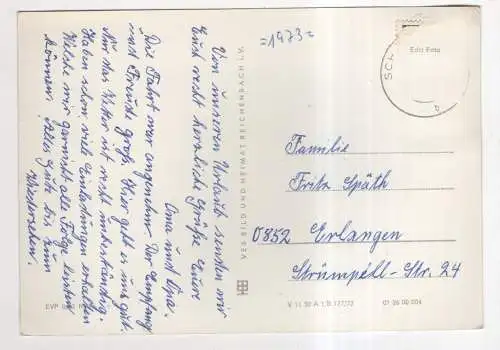 Von unseren Urlaub senden wir
Euch recht herzliche Grüße Eure
Oma und Opa.
Die Fahrt war angenehm. Der Empfang
und Freude groß. Hier geht es uns gut.
Nur das Wetter ist nicht unbeständig.
Haben schon viel Einladungen erhalten
Welche wir garnicht alle Folge leisten
können. Alles Gute bis zum
Wiedersehen.
=1973=
VEB BILD UND HEIMAT REICHENBACH I. V.
Echt Foto
SCH
Familie
Fritz Späth
0852 Erlangen
Strümpell-Str. 24
EVP
V 11 50 A 1/B 127/72
01 06 00 004